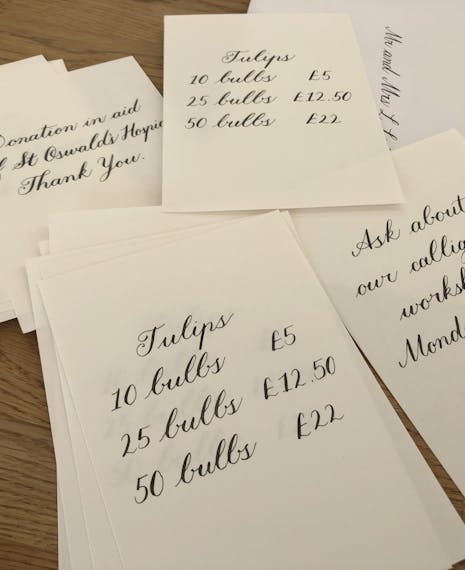 Tulips
10 bulbs £5
25 bulbs £12.50
50 bulbs £22
Mr and Mrs L
Donation in aid
St Oswald's Hospic
Thank You.
Ask about
our callig
worksh
Mond
Tulips
10 bulbs £5
25 bulbs £12.50
50 bulbs £22